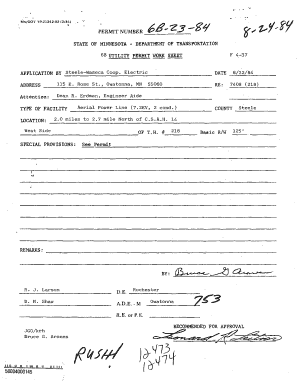 PERMIT NUMBER 6B-23-84
8-24-84
STATE OF MINNESOTA - DEPARTMENT OF TRANSPORTATION
6B UTILITY PERMIT WORK SHEET
F 4-37
APPLICATION BY Steele-Waseca Coop. Electric DATE 8/22/84
ADDRESS Owatonna, MN 55060 RE: 7408 (218)
Attention: Dean R. Erdman, Engineer Aide
TYPE OF FACILITY Aerial Power Line (7.2KV, 2 cond.) COUNTY Steele
LOCATION: 2.0 miles to 2.7 mile North of C.S.A.H. 14
West Side OF T.H. # 218 Basic R/W 125'
SPECIAL PROVISIONS: See Permit
REMARKS:
BY: Bruce G Arones
R. J. Larson D.E. Rochester
E. M. Shaw A.D.E. - M Owatonna 753
R.E. or P.E.
RECOMMENDED FOR APPROVAL
JGO/krh
Bruce G. Arones
RUSH!
12473
12474